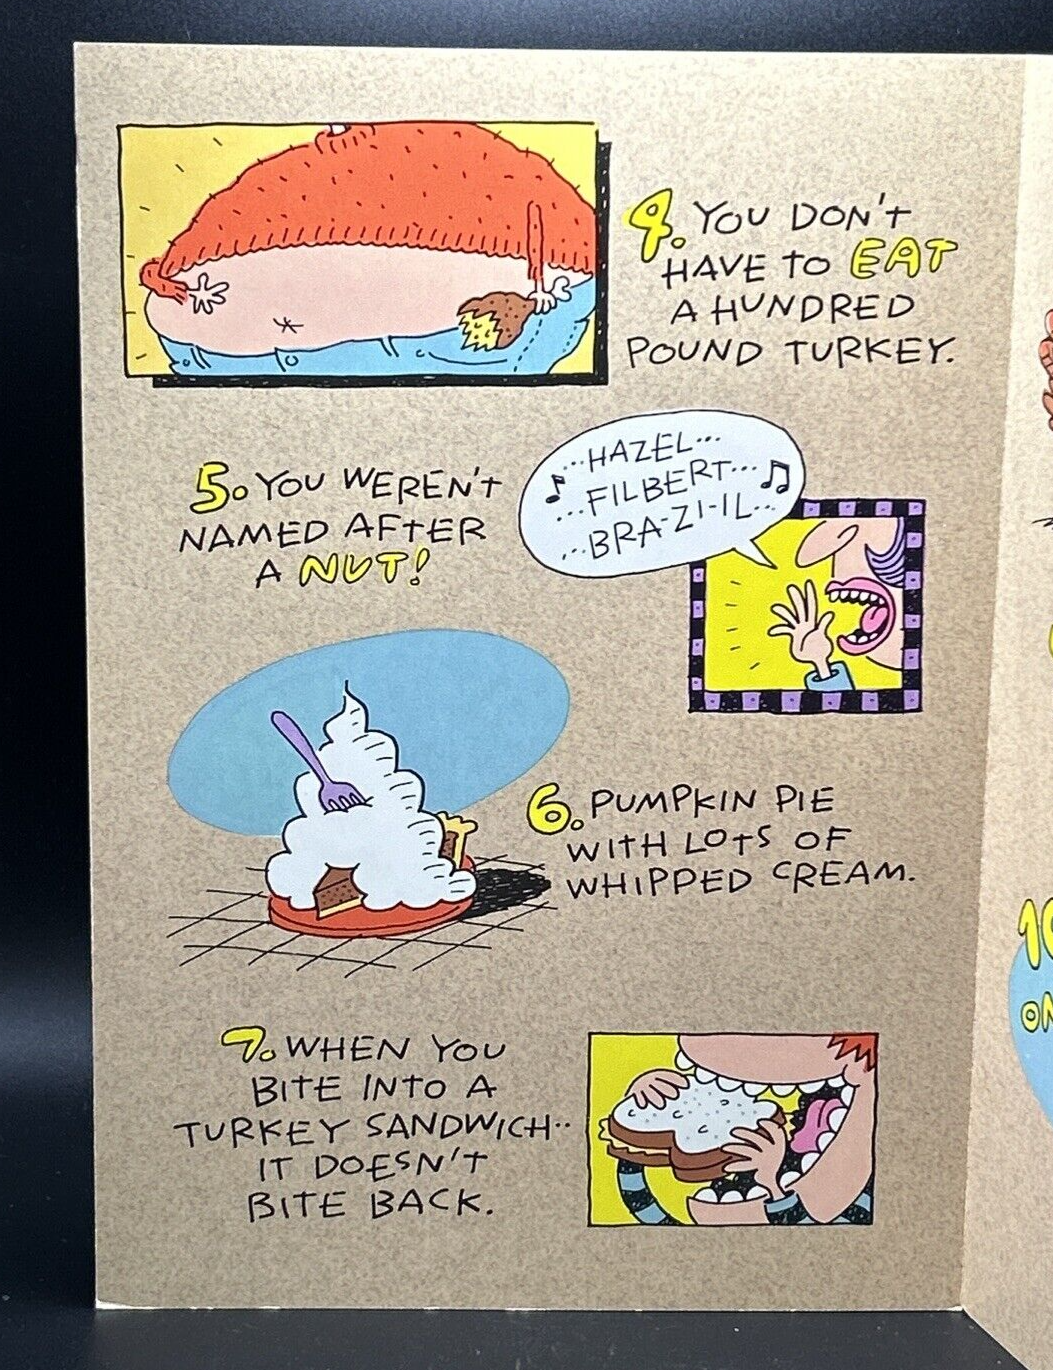 4. YOU DON'T
HAVE TO EAT
A HUNDRED
POUND TURKEY.
5. YOU WEREN'T
NAMED AFTER
A NUT!
...HAZEL...
...FILBERT...
...BRA-ZI-IL...
6. PUMPKIN PIE
WITH LOTS OF
WHIPPED CREAM.
7. WHEN YOU
BITE INTO A
TURKEY SANDWICH..
IT DOESN'T
BITE BACK.